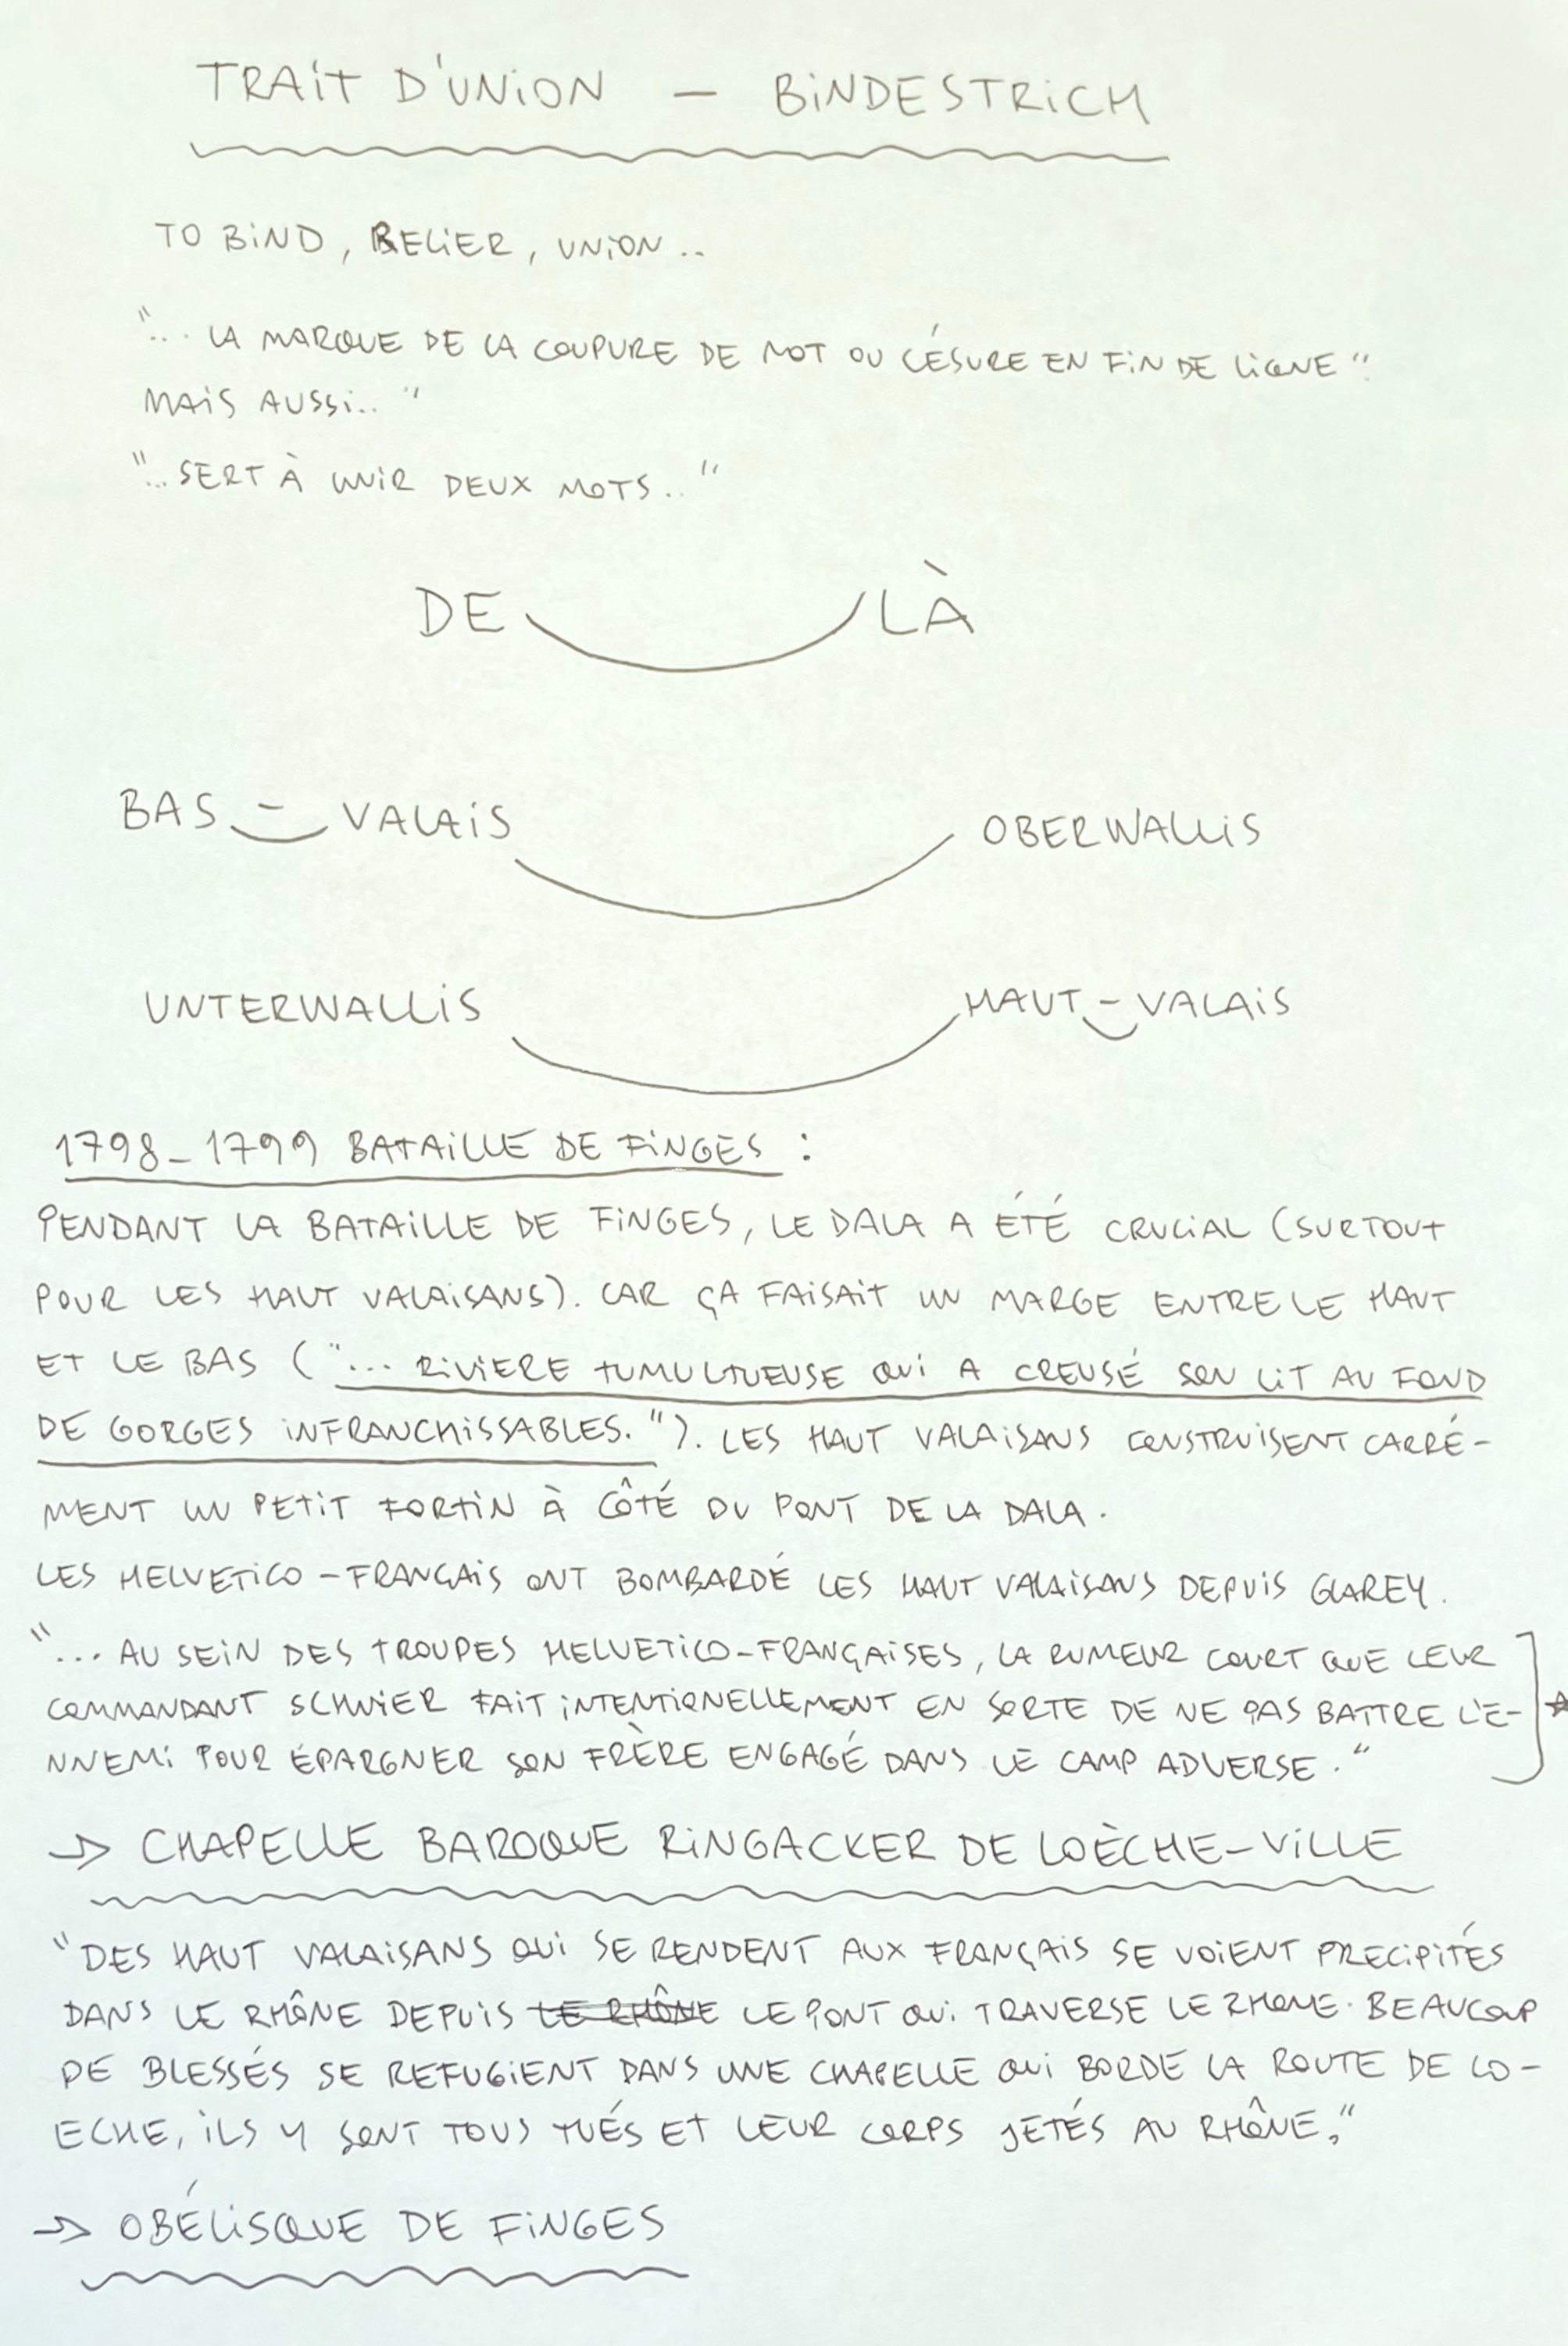 TRAIT D'UNION — BINDESTRICH
TO BIND, RELIER, UNION..
"... LA MARQUE DE LA COUPURE DE MOT OU CÉSURE EN FIN DE LIGNE"
MAIS AUSSI.. "
"..SERT À UNIR DEUX MOTS.."
DE LÀ
BAS - VALAIS OBERWALLIS
UNTERWALLIS HAUT - VALAIS
1798-1799 BATAILLE DE FINGES :
PENDANT LA BATAILLE DE FINGES, LE DALA A ÉTÉ CRUCIAL (SURTOUT
POUR LES HAUT VALAISANS). CAR ÇA FAISAIT UN MARGE ENTRE LE HAUT
ET LE BAS ("... RIVIERE TUMULTUEUSE QUI A CREUSÉ SON LIT AU FOND
DE GORGES INFRANCHISSABLES."). LES HAUT VALAISANS CONSTRUISENT CARRÉ-
MENT UN PETIT FORTIN À CÔTÉ DU PONT DE LA DALA.
LES HELVETICO-FRANÇAIS ONT BOMBARDÉ LES HAUT VALAISANS DEPUIS GLAREY.
"... AU SEIN DES TROUPES HELVETICO-FRANÇAISES, LA RUMEUR COURT QUE LEUR
COMMANDANT SCHNIER FAIT INTENTIONELLEMENT EN SORTE DE NE PAS BATTRE L'E-
NNEMI POUR ÉPARGNER SON FRÈRE ENGAGÉ DANS LE CAMP ADVERSE."
→ CHAPELLE BAROQUE RINGACKER DE LOÈCHE-VILLE
"DES HAUT VALAISANS QUI SE RENDENT AUX FRANÇAIS SE VOIENT PRECIPITÉS
DANS LE RHÔNE DEPUIS LE RHÔNE LE PONT QUI TRAVERSE LE RHONE. BEAUCOUP
DE BLESSÉS SE REFUGIENT DANS UNE CHAPELLE QUI BORDE LA ROUTE DE LO-
ECHE, ILS Y SONT TOUS TUÉS ET LEUR CORPS JETÉS AU RHÔNE,"
→ OBÉLISQUE DE FINGES